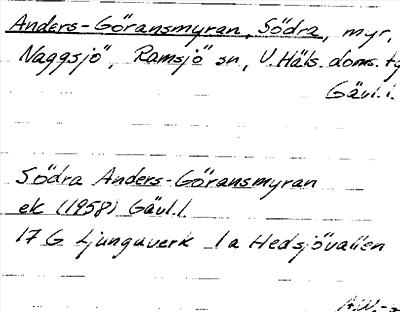 Anders-Göransmyran, Södra, myr,
Naggsjö, Ramsjö sn, V. Häls. doms. tg
Gävl.l.
Södra Anders-Göransmyran
ek (1958) Gävl.l.
17 G Ljungaverk 1a Hedsjövallen